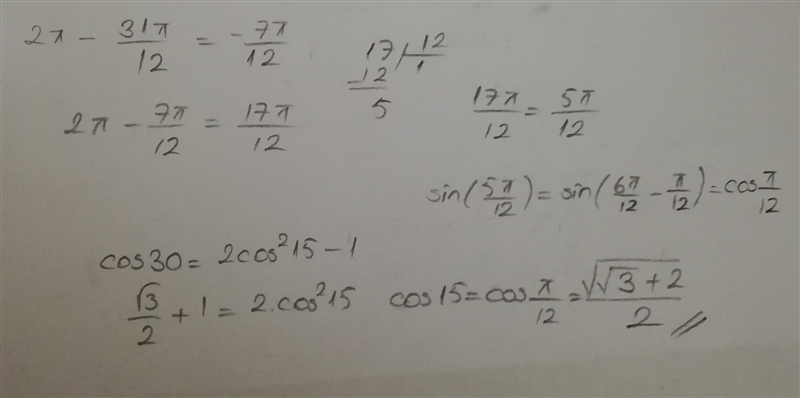 2π - 31π/12 = -7π/12
2π - 7π/12 = 17π/12
17 | 12
-12 1
5
17π/12 = 5π/12
sin(5π/12) = sin(6π/12 - π/12) = cos π/12
cos30 = 2cos²15 - 1
√3/2 + 1 = 2.cos²15 cos15 = cos π/12 = √(√3+2)/2 //